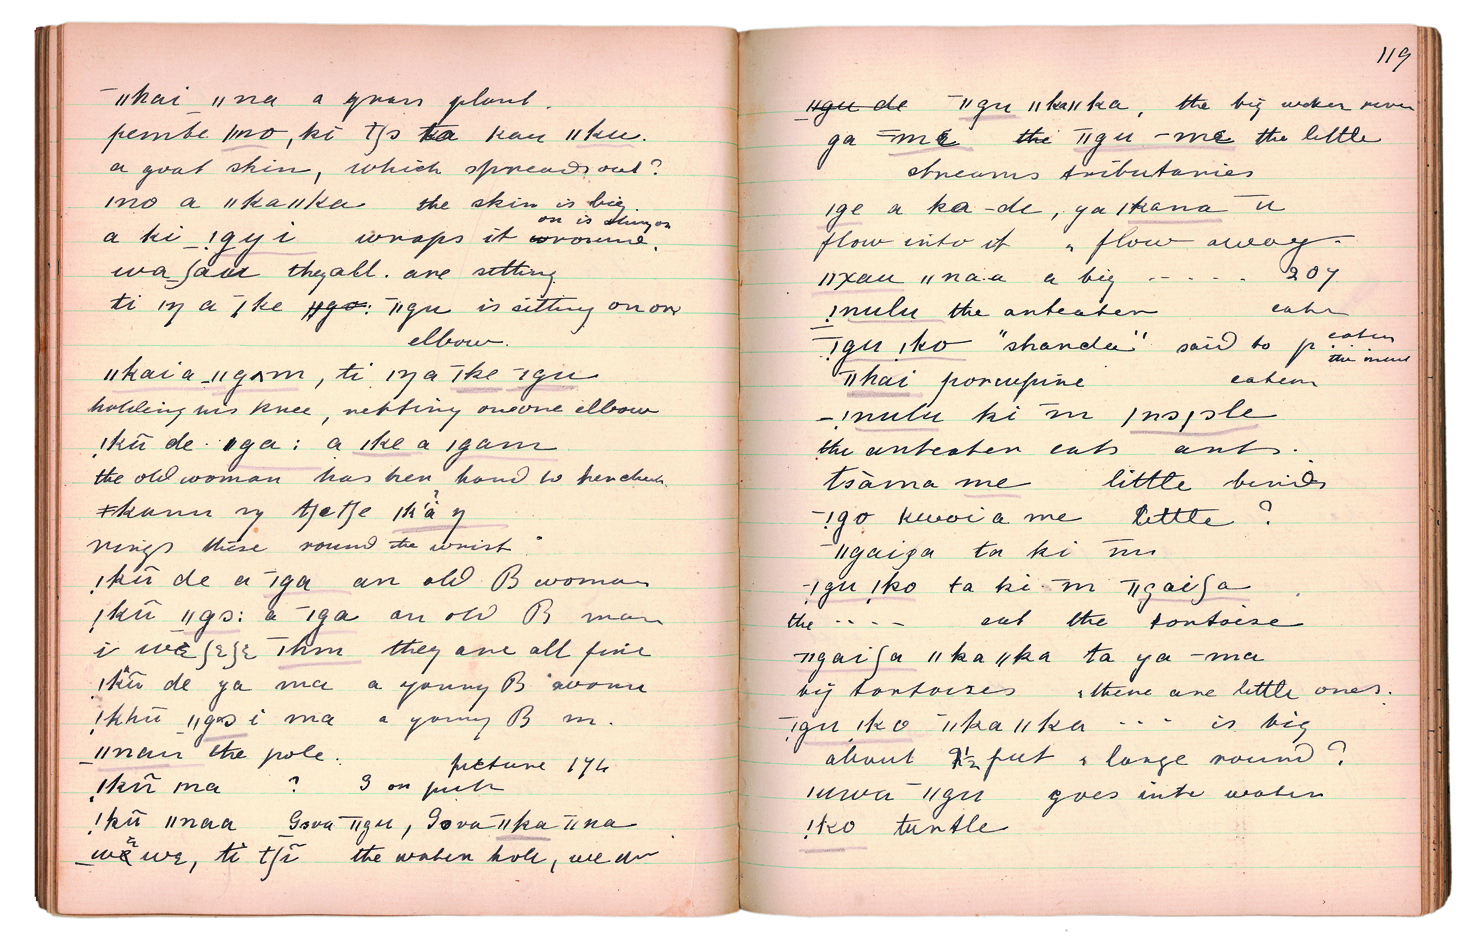 ‾ǁkai ǁna a grass plant.
pembe ǀno, ki tʃs ka kau ǁku.
a goat skin, which spreads out?
ǀno a ǁkaǁka the skin is big.
a ki _ǃgyi wraps it on is slung on
wa ʃau they all. are sitting
ti ŋ a ‾ǀke ‾ǁgu is sitting on one
elbow.
ǁkai a _ǁgam, ti ŋ a ‾ǀke ‾ǀgu
holding his knee, resting on one elbow
ǃkū de ǁga: a ǀke a ǀgam
the old woman has her hand to her cheek
ǂkann ŋ tʃetʃe ǀká ŋ
rings these round the wrist
ǃkū de a ‾ǀga an old B woman
ǃkū ǁgɔ: a ‾ǀga an old B man
i wɛʃɛʃɛ ‾ǀkm they are all fine
ǃkū de ya ma a young B woma
ǃkhū ǁgɔ i ma a young B m.
_ǁnau the pole.
picture 174
ǃkū ma ? 3 on path
ǃkū ǁnaa Gɔva ‾ǁgu, Gɔva ‾ǁka ‾ǁna
_wɛ wɛ, ti tʃī the water hole, we dr
119
‾ǁgu ǁkaǁka, the big water river
ga =mɛ ‾ǁgu -mɛ the little
streams tributaries
ǀge a ka-de, ya ǀkana ‾u
flow into it " flow away.
ǁxau ǁnaa a big - - - - - 207
_ǃnulu the anteater eater
‾ǃgu ǃko "shanda" said to p eater
the meat
‾ǁkai porcupine eaten
-ǃnulu ki ‾m ǀnsǀsle
the anteater eats ants.
tsàma me little birds
-ǃgo kwoi a me little ?
‾ǁgaiʃa ta ki ‾m
-ǃgu ǃko ta ki ‾m ‾ǁgaiʃa
the - - - - eat the tortoise
-ǁgaiʃa ǁkaǁka ta ya -ma
big tortoises " there are little ones.
‾ǃgu ǃko ‾ǁkaǁka - - - is big
about 2½ feet " large round ?
ǀuwa ‾ǁgu goes into water
ǃko turtle